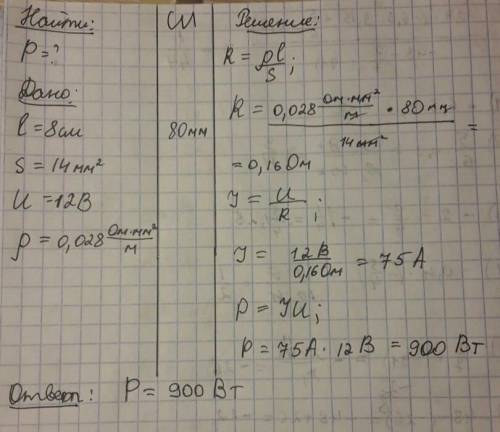 Найти:
P = ?
Дано:
l = 8см
S = 14мм²
U = 12В
ρ = 0,028 Ом·мм²/м
СИ
80мм
Решение:
R = ρl/S;
R = 0,028 Ом·мм²/м · 80мм / 14мм² =
= 0,16Ом
I = U/R;
I = 12В/0,16Ом = 75А
P = IU;
P = 75А · 12В = 900 Вт
Ответ: P = 900 Вт